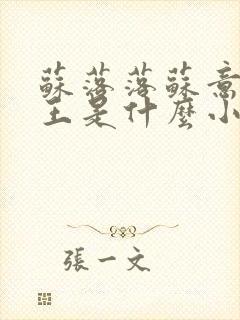 蘇落落蘇意
主是什麼小
張一文